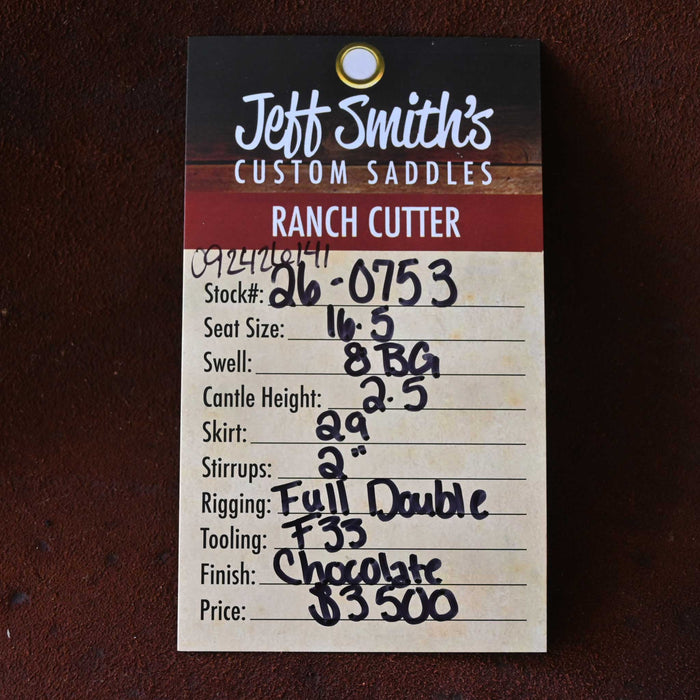 Jeff Smith's
CUSTOM SADDLES
RANCH CUTTER
092426141
Stock#: 26-0753
Seat Size: 16.5
Swell: 8 BG
Cantle Height: 2.5
Skirt: 29
Stirrups: 2"
Rigging: Full Double
Tooling: F33
Finish: Chocolate
Price: $3500